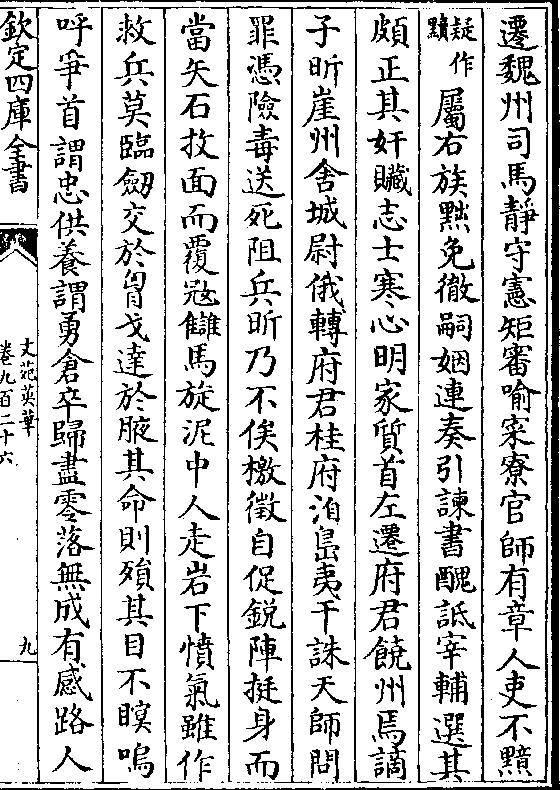 遷魏州司馬靜守憲矩審喻寀寮官師有章人吏不黯
疑作黷屬右族黜免徹嗣姻連奏引諫書醜詆宰輔選其
頗正其奸贜志士寒心明家質首左遷府君饒州馬謫
子昕崖州舍城尉俄轉府君桂府洎島夷干誅天師問
罪憑險毒送死阻兵昕乃不俟檄徵自促銳陣挺身而
當矢石抆面而覆冦讎馬旋泥中人走岩下憤氣雖作
救兵莫臨劒交於胷戈達於腋其命則殞其目不瞑嗚
呼爭首謂忠供養謂勇倉卒歸盡零落無成有感路人
欽定四庫全書
文苑英華
卷九百二十六
九